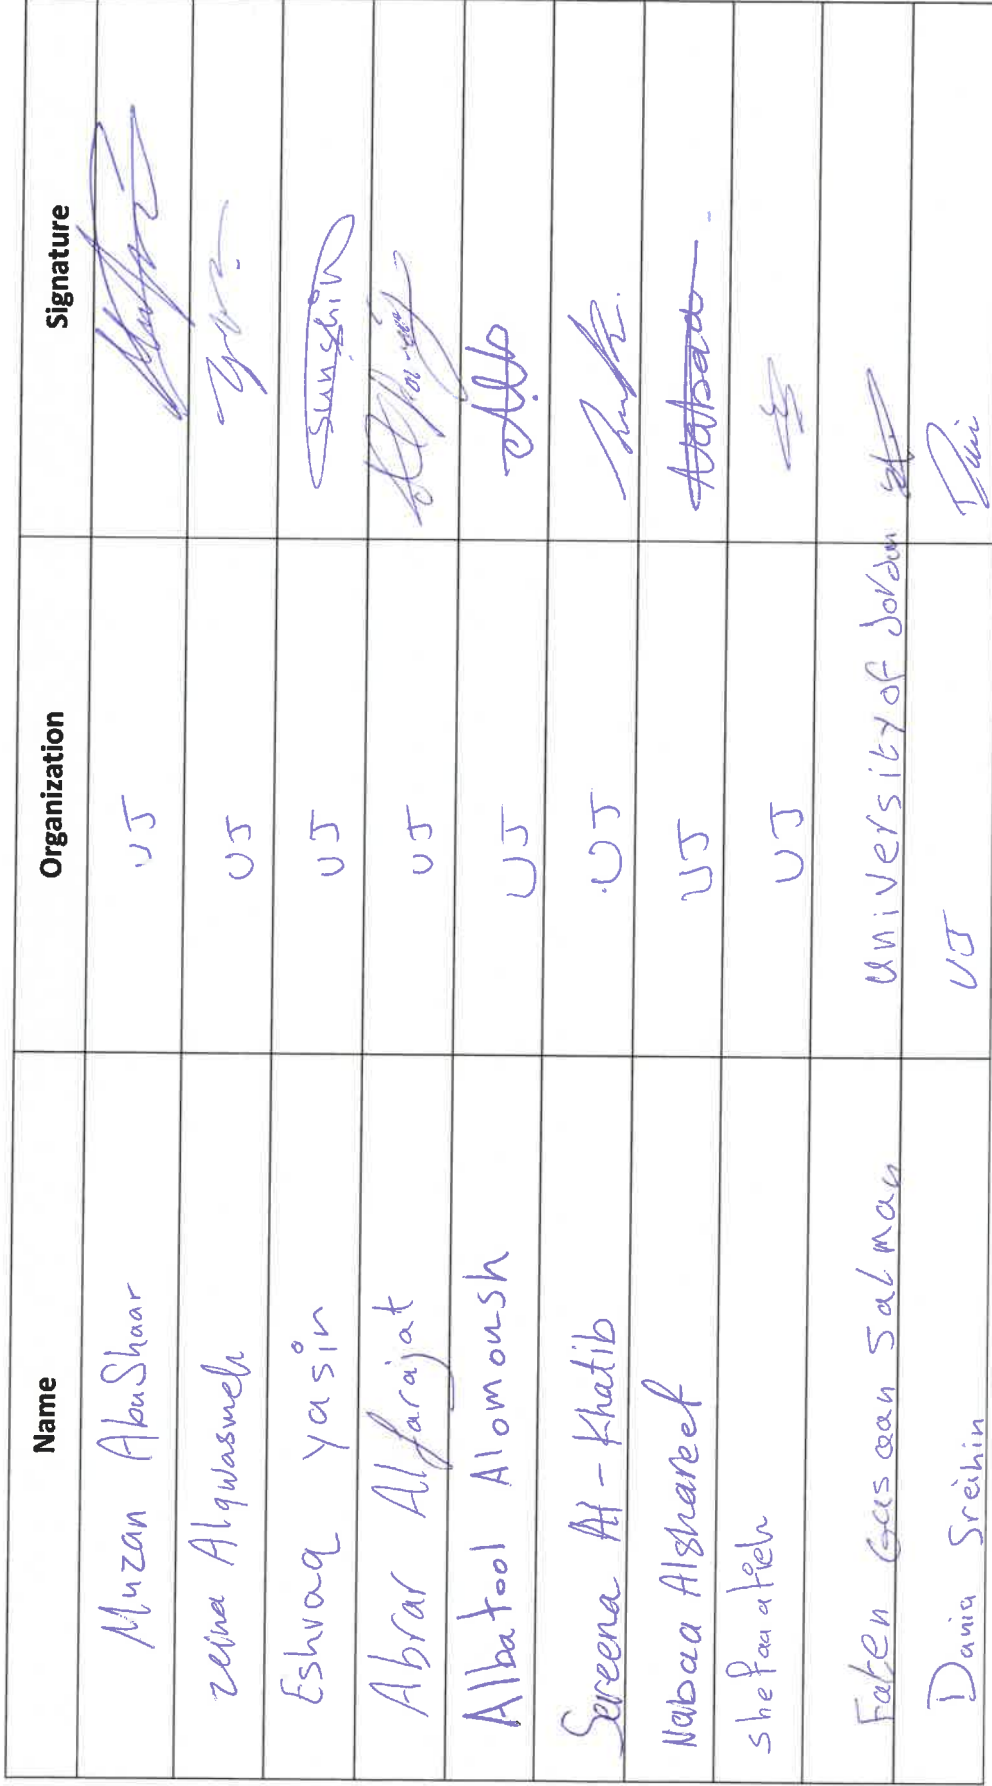 Name Organization Signature
Muzan AbuShaar UJ
zeina Alqwasmeh UJ
Eshraq yasin UJ Sunshin
Abrar Alfarajat UJ
Albatool Alomoush UJ
Sereena Al-Khatib UJ
Nabaa Alshareef UJ Nabaa
shefaa atieh UJ
Faten Gassan Salman University of Jordan
Dania Sreihin UJ